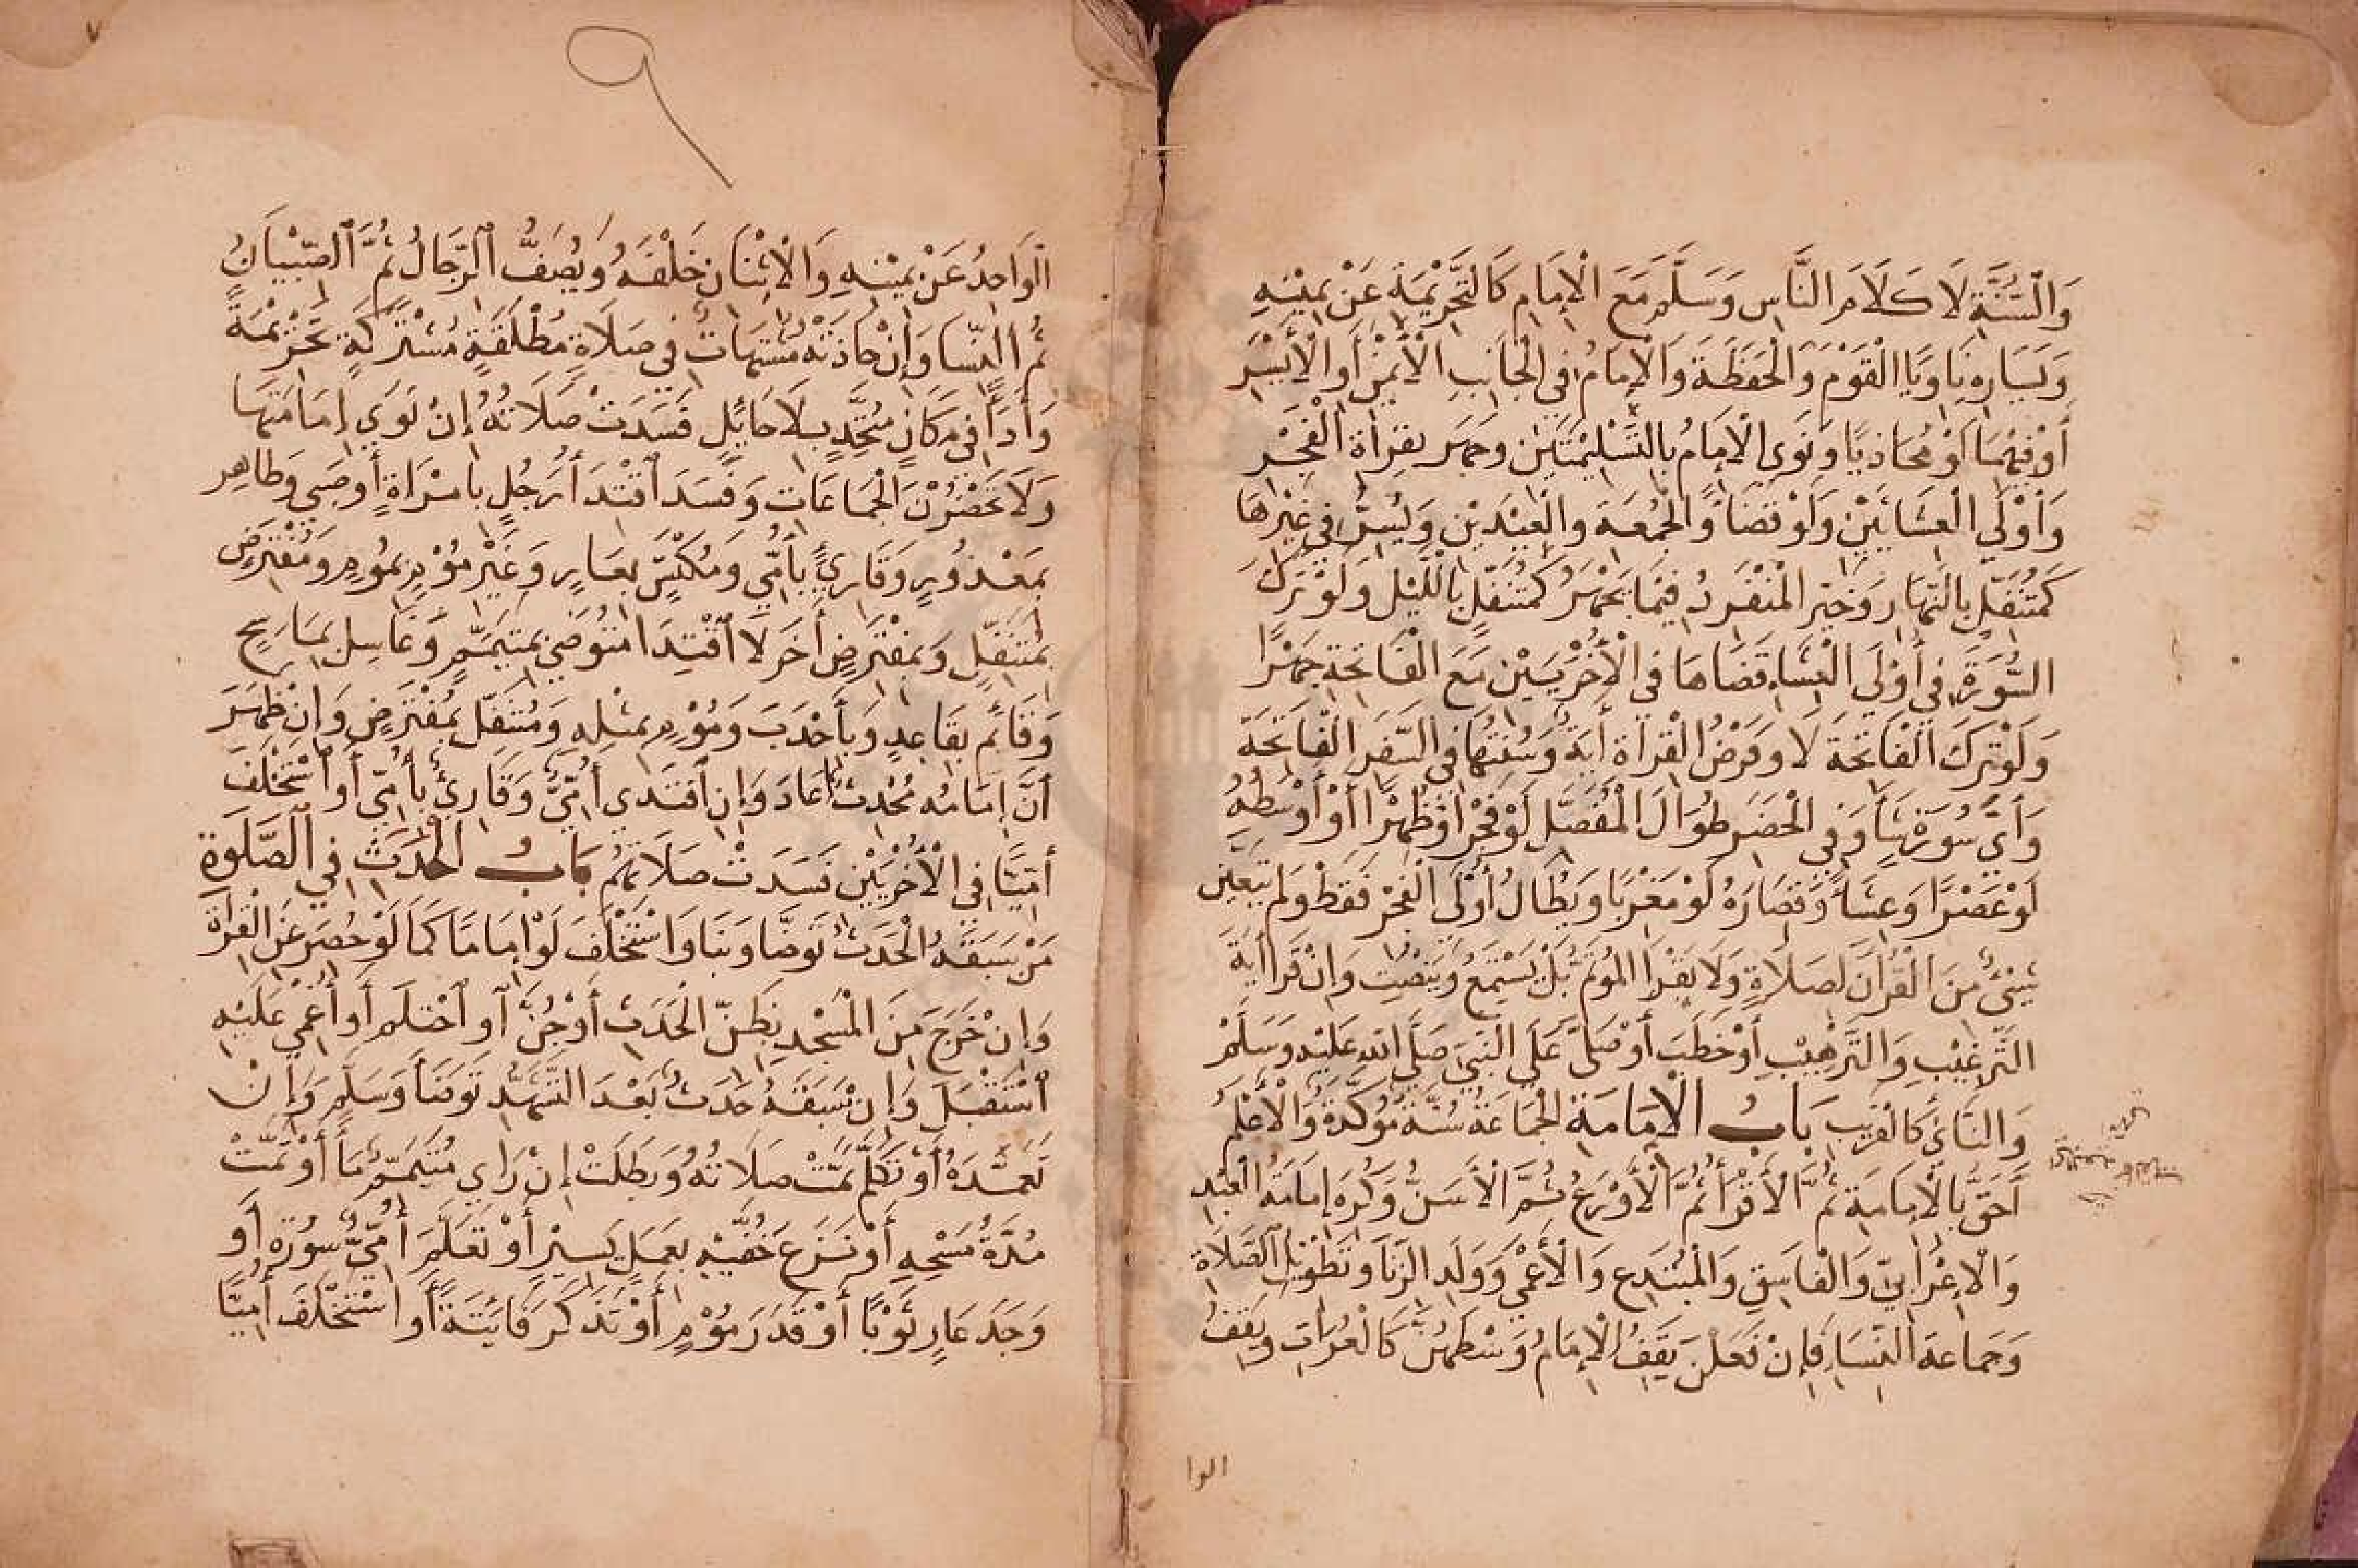 وَالسُّنَّةِ لَا كَلَامَ النَّاسِ وَسَلَّمَ مَعَ الْإِمَامِ كَالتَّحْرِيْمَةِ عَنْ يَمِيْنِهِ
وَيَسَارِهِ نَاوِيًا الْقَوْمَ وَالْحَفَظَةَ وَالْإِمَامُ فِي الْجَانِبِ الْأَيْمَنِ أَوِ الْأَيْسَرِ
أَوْ فِيْهِمَا لَوْ مُحَاذِيًا وَنَوَى الْإِمَامُ بِالتَّسْلِيْمَتَيْنِ وَجَهَرَ بِقِرَأَةِ الْفَجْرِ
وَأَوْلَى الْعِشَائَيْنِ وَلَوْ قَضَاً وَالْجُمُعَةِ وَالْعِيْدَيْنِ وَيُسِرُّ فِي غَيْرِهَا
كَمُتَنَفِّلٍ بِالنَّهَارِ وَخُيِّرَ الْمُنْفَرِدُ فِيْمَا يَجْهَرُ كَمُتَنَفِّلٍ بِاللَّيْلِ وَلَوْ تَرَكَ
السُّوْرَةَ فِي أُوْلَى الْعِشَاءِ قَضَاهَا فِي الْأُخْرَيَيْنِ مَعَ الْفَاتِحَةِ جَهْرًا
وَلَوْ تَرَكَ الْفَاتِحَةَ لَا وَفَرْضُ الْقِرَاَةِ أَيَةٌ وَسُنَّتُهَا فِي السَّفَرِ الْفَاتِحَةَ
وَأَيَّ سُوْرَةٍ شَأَ وَفِي الْحَضَرِ طِوَالَ الْمُفَصَّلِ لَوْ فَجْرًا أَوْ ظُهْرًا أَوْ أَوْسَطَهُ
لَوْ عَصْرًا وَعِشَاً وَقِصَارَهُ لَوْ مَغْرِبًا وَيُطَالُ أُوْلَى الْفَجْرِ فَقَطْ وَلَمْ يَتَعَيَّنْ
شَيْئٌ مِنَ الْقُرْآنِ لِصَلَاةٍ وَلَا يَقْرَأُ الْمُوْتَمُّ بَلْ يَسْتَمِعُ وَيُنْصِتُ وَإِنْ قَرَأَ أَيَةَ
التَّرْغِيْبِ وَالتَّرْهِيْبِ أَوْ خَطَبَ أَوْ صَلَّى عَلَى النَّبِيِّ صَلَّى اللهُ عَلَيْهِ وَسَلَّمَ
وَالنَّائِي كَالْقَرِيْبِ بَابُ الْإِمَامَةِ الْجَمَاعَةُ سُنَّةٌ مُؤَكَّدَةٌ وَالْأَعْلَمُ
أَحَقُّ بِالْإِمَامَةِ ثُمَّ الْأَقْرَأُ ثُمَّ الْأَوْرَعُ ثُمَّ الْأَسَنُّ وَكُرِهَ إِمَامَةُ الْعَبْدِ
وَالْأَعْرَابِيِّ وَالْفَاسِقِ وَالْمُبْتَدِعِ وَالْأَعْمَى وَوَلَدِ الزِّنَا وَتَطْوِيْلُ الصَّلَاةِ
وَجَمَاعَةُ النِّسَاءِ فَإِنْ فَعَلْنَ يَقِفُ الْإِمَامُ وَسْطَهُنَّ كَالْعُرَاتِ وَيَقِفُ
الوا
٩
الْوَاحِدُ عَنْ يَمِيْنِهِ وَالْاِثْنَانِ خَلْفَهُ وَيُصَفُّ الرِّجَالُ ثُمَّ الصِّبْيَانُ
ثُمَّ النِّسَا وَإِنْ حَاذَتْهُ مُشْتَهَاتٌ فِي صَلَاةٍ مُطْلَقَةٍ مُشْتَرَكَةٍ تَحْرِيْمَةً
وَأَدَاً فِي مَكَانٍ مُتَّحِدٍ بِلَا حَائِلٍ فَسَدَتْ صَلَاتُهُ إِنْ نَوَى إِمَامَتَهَا
وَلَا يَحْضُرْنَ الْجَمَاعَاتِ وَفَسَدَ اقْتِدَأُ رَجُلٍ بِامْرَأَةٍ أَوْ صَبِيٍّ وَطَاهِرٍ
بِمَعْذُوْرٍ وَقَارِئٍ بِأُمِّيٍّ وَمُكْتَسٍ بِعَارٍ وَغَيْرِ مُؤْمٍ بِمُوْمٍ وَمُفْتَرِضٍ
بِمُتَنَفِّلٍ وَبِمُفْتَرِضٍ أَخَرَ لَا اقْتِدَا مُتَوَضِّئٍ بِمُتَيَمِّمٍ وَغَاسِلٍ بِمَاسِحٍ
وَقَائِمٍ بِقَاعِدٍ وَبِأَحْدَبَ وَمُوْمٍ بِمِثْلِهِ وَمُتَنَفِّلٍ بِمُفْتَرِضٍ وَإِنْ ظَهَرَ
أَنَّ إِمَامَهُ مُحْدِثٌ أَعَادَ وَإِنِ اقْتَدَى أُمِّيٌّ وَقَارِئٌ بِأُمِّيٍّ أَوِ اسْتَخْلَفَ
أُمِّيًّا فِي الْأُخْرَيَيْنِ فَسَدَتْ صَلَاتُهُمْ بَابُ الْحَدَثِ فِي الصَّلَوةِ
مَنْ سَبَقَهُ الْحَدَثُ تَوَضَّا وَبَنَا وَاسْتَخْلَفَ لَوْ إِمَامًا كَمَا لَوْ حُصِرَ عَنِ الْقِرَأَةِ
وَإِنْ خَرَجَ مِنَ الْمَسْجِدِ بِظَنِّ الْحَدَثِ أَوْ جُنَّ أَوِ احْتَلَمَ أَوْ أُغْمِيَ عَلَيْهِ
اسْتَقْبَلَ وَإِنْ سَبَقَهُ حَدَثٌ بَعْدَ التَّشَهُّدِ تَوَضَّأَ وَسَلَّمَ وَإِنْ
تَعَمَّدَهُ أَوْ تَكَلَّمَ تَمَّتْ صَلَاتُهُ وَبَطَلَتْ إِنْ رَاي مُتَيَمِّمٌ مَاً أَوْ تَمَّتْ
مُدَّةُ مَسْحِهِ أَوْ نَزَعَ خُفَّيْهِ بِعَمَلٍ يَسِيْرٍ أَوْ تَعَلَّمَ أُمِّيٌّ سُوْرَةً أَوْ
وَجَدَ عَارٍ ثَوْبًا أَوْ قَدَرَ مُوْمٍ أَوْ تَذَكَّرَ فَائِتَةً أَوِ اسْتَخْلَفَ أُمِّيًّا